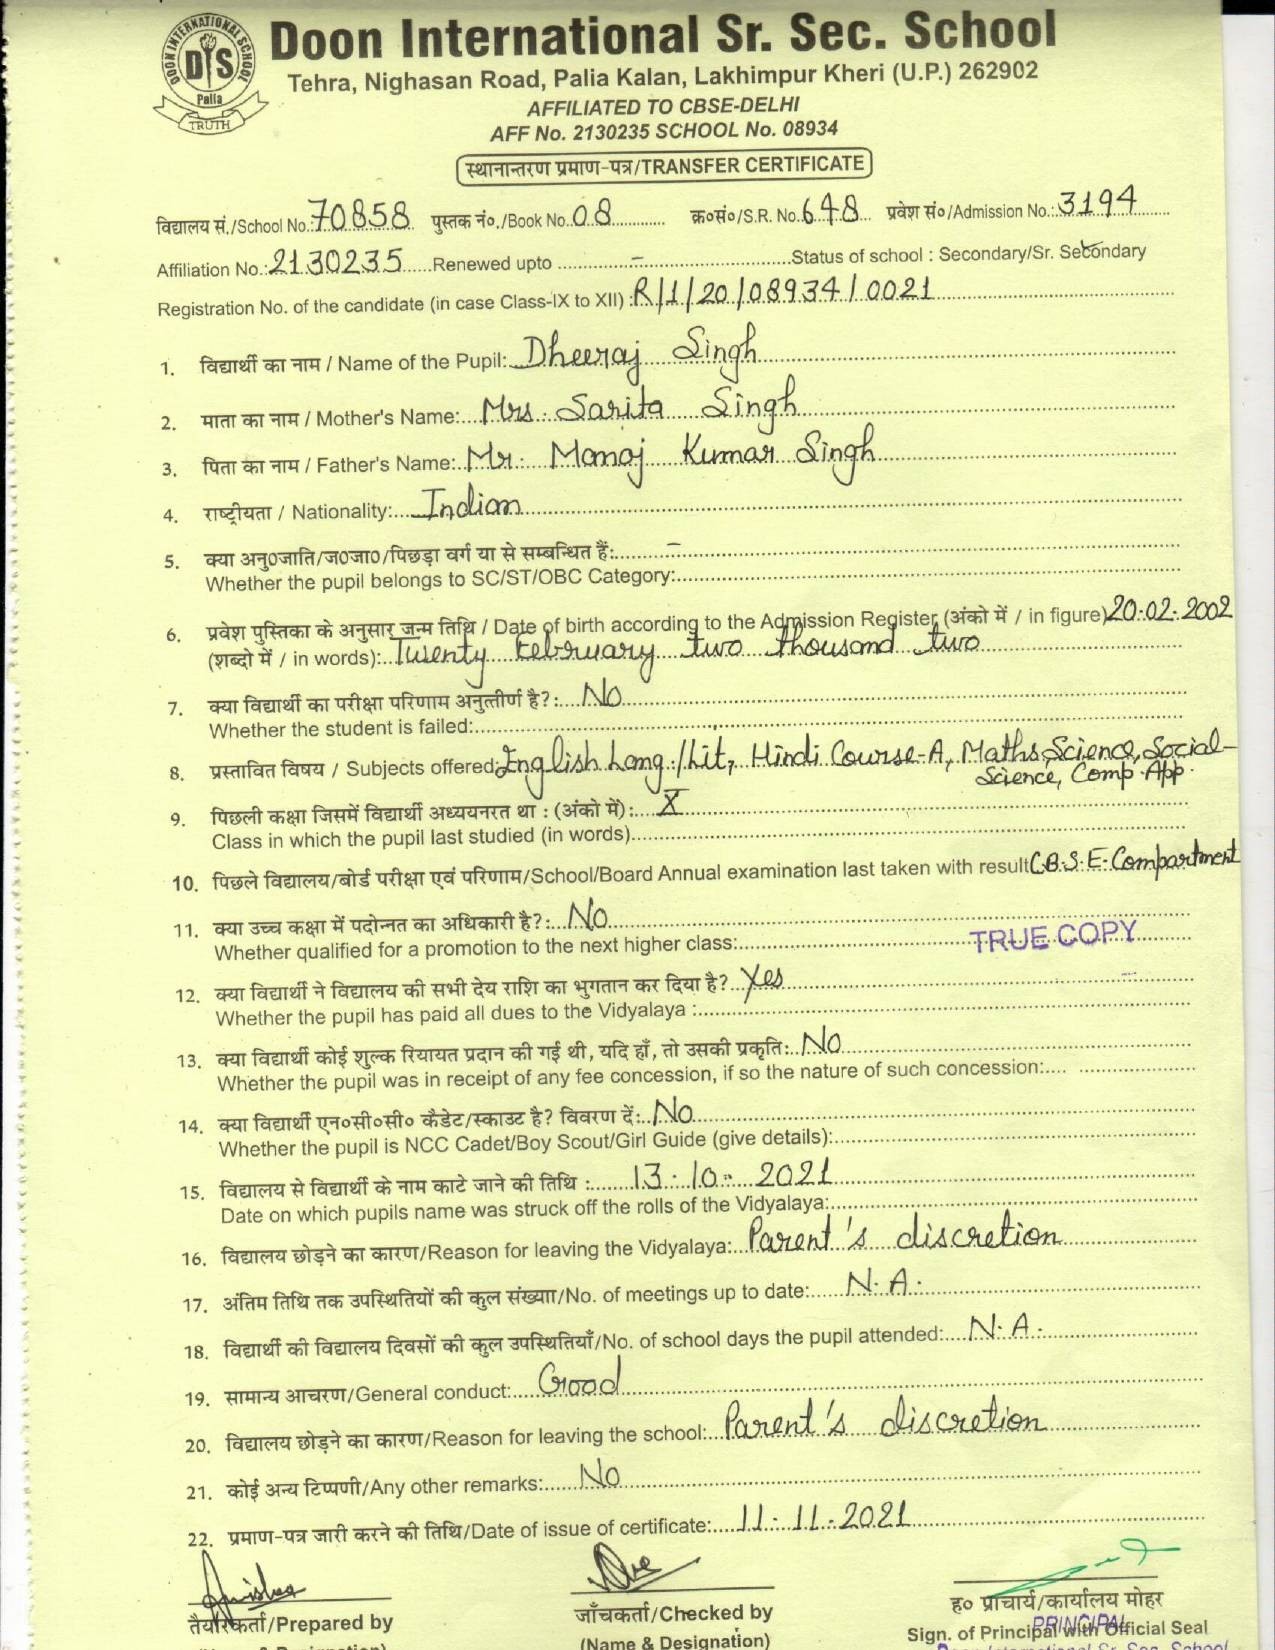 DOON INTERNATIONAL SCHOOL
DIS
Palia
TRUTH
Doon International Sr. Sec. School
Tehra, Nighasan Road, Palia Kalan, Lakhimpur Kheri (U.P.) 262902
AFFILIATED TO CBSE-DELHI
AFF No. 2130235 SCHOOL No. 08934
स्थानान्तरण प्रमाण-पत्र/TRANSFER CERTIFICATE
विद्यालय सं./School No. 70858 पुस्तक नं०./Book No. 08 क्र०सं०/S.R. No. 648 प्रवेश सं०/Admission No.: 3194
Affiliation No.: 2130235 Renewed upto - Status of school : Secondary/Sr. Secondary
Registration No. of the candidate (in case Class-IX to XII) : R/1/20/08934/0021
1. विद्यार्थी का नाम / Name of the Pupil: Dheeraj Singh
2. माता का नाम / Mother's Name: Mrs. Sarita Singh
3. पिता का नाम / Father's Name: Mr. Manoj Kumar Singh
4. राष्ट्रीयता / Nationality: Indian
5. क्या अनु०जाति/ज०जा०/पिछड़ा वर्ग या से सम्बन्धित हैं: -
Whether the pupil belongs to SC/ST/OBC Category:
6. प्रवेश पुस्तिका के अनुसार जन्म तिथि / Date of birth according to the Admission Register (अंको में / in figure) 20-02-2002
(शब्दो में / in words): Twenty February two thousand two
7. क्या विद्यार्थी का परीक्षा परिणाम अनुत्तीर्ण है?: No
Whether the student is failed:
8. प्रस्तावित विषय / Subjects offered: English Lang./Lit, Hindi Course-A, Maths, Science, Social-
Science, Comp. App.
9. पिछली कक्षा जिसमें विद्यार्थी अध्ययनरत था : (अंको में): X
Class in which the pupil last studied (in words)
10. पिछले विद्यालय/बोर्ड परीक्षा एवं परिणाम/School/Board Annual examination last taken with result C.B.S.E. Compartment
11. क्या उच्च कक्षा में पदोन्नत का अधिकारी है?: No
Whether qualified for a promotion to the next higher class:
TRUE COPY
12. क्या विद्यार्थी ने विद्यालय की सभी देय राशि का भुगतान कर दिया है? Yes
Whether the pupil has paid all dues to the Vidyalaya :
13. क्या विद्यार्थी कोई शुल्क रियायत प्रदान की गई थी, यदि हाँ, तो उसकी प्रकृति: No
Whether the pupil was in receipt of any fee concession, if so the nature of such concession:
14. क्या विद्यार्थी एन०सी०सी० कैडेट/स्काउट है? विवरण दें: No
Whether the pupil is NCC Cadet/Boy Scout/Girl Guide (give details):
15. विद्यालय से विद्यार्थी के नाम काटे जाने की तिथि : 13-10-2021
Date on which pupils name was struck off the rolls of the Vidyalaya:
16. विद्यालय छोड़ने का कारण/Reason for leaving the Vidyalaya: Parent's discretion
17. अंतिम तिथि तक उपस्थितियों की कुल संख्या/No. of meetings up to date: N.A.
18. विद्यार्थी की विद्यालय दिवसों की कुल उपस्थितियाँ/No. of school days the pupil attended: N.A.
19. सामान्य आचरण/General conduct: Good
20. विद्यालय छोड़ने का कारण/Reason for leaving the school: Parent's discretion
21. कोई अन्य टिप्पणी/Any other remarks: No
22. प्रमाण-पत्र जारी करने की तिथि/Date of issue of certificate: 11-11-2021
तैयारकर्ता/Prepared by जाँचकर्ता/Checked by ह० प्राचार्य/कार्यालय मोहर
(Name & Designation) Sign. of Principal with Official Seal
PRINCIPAL